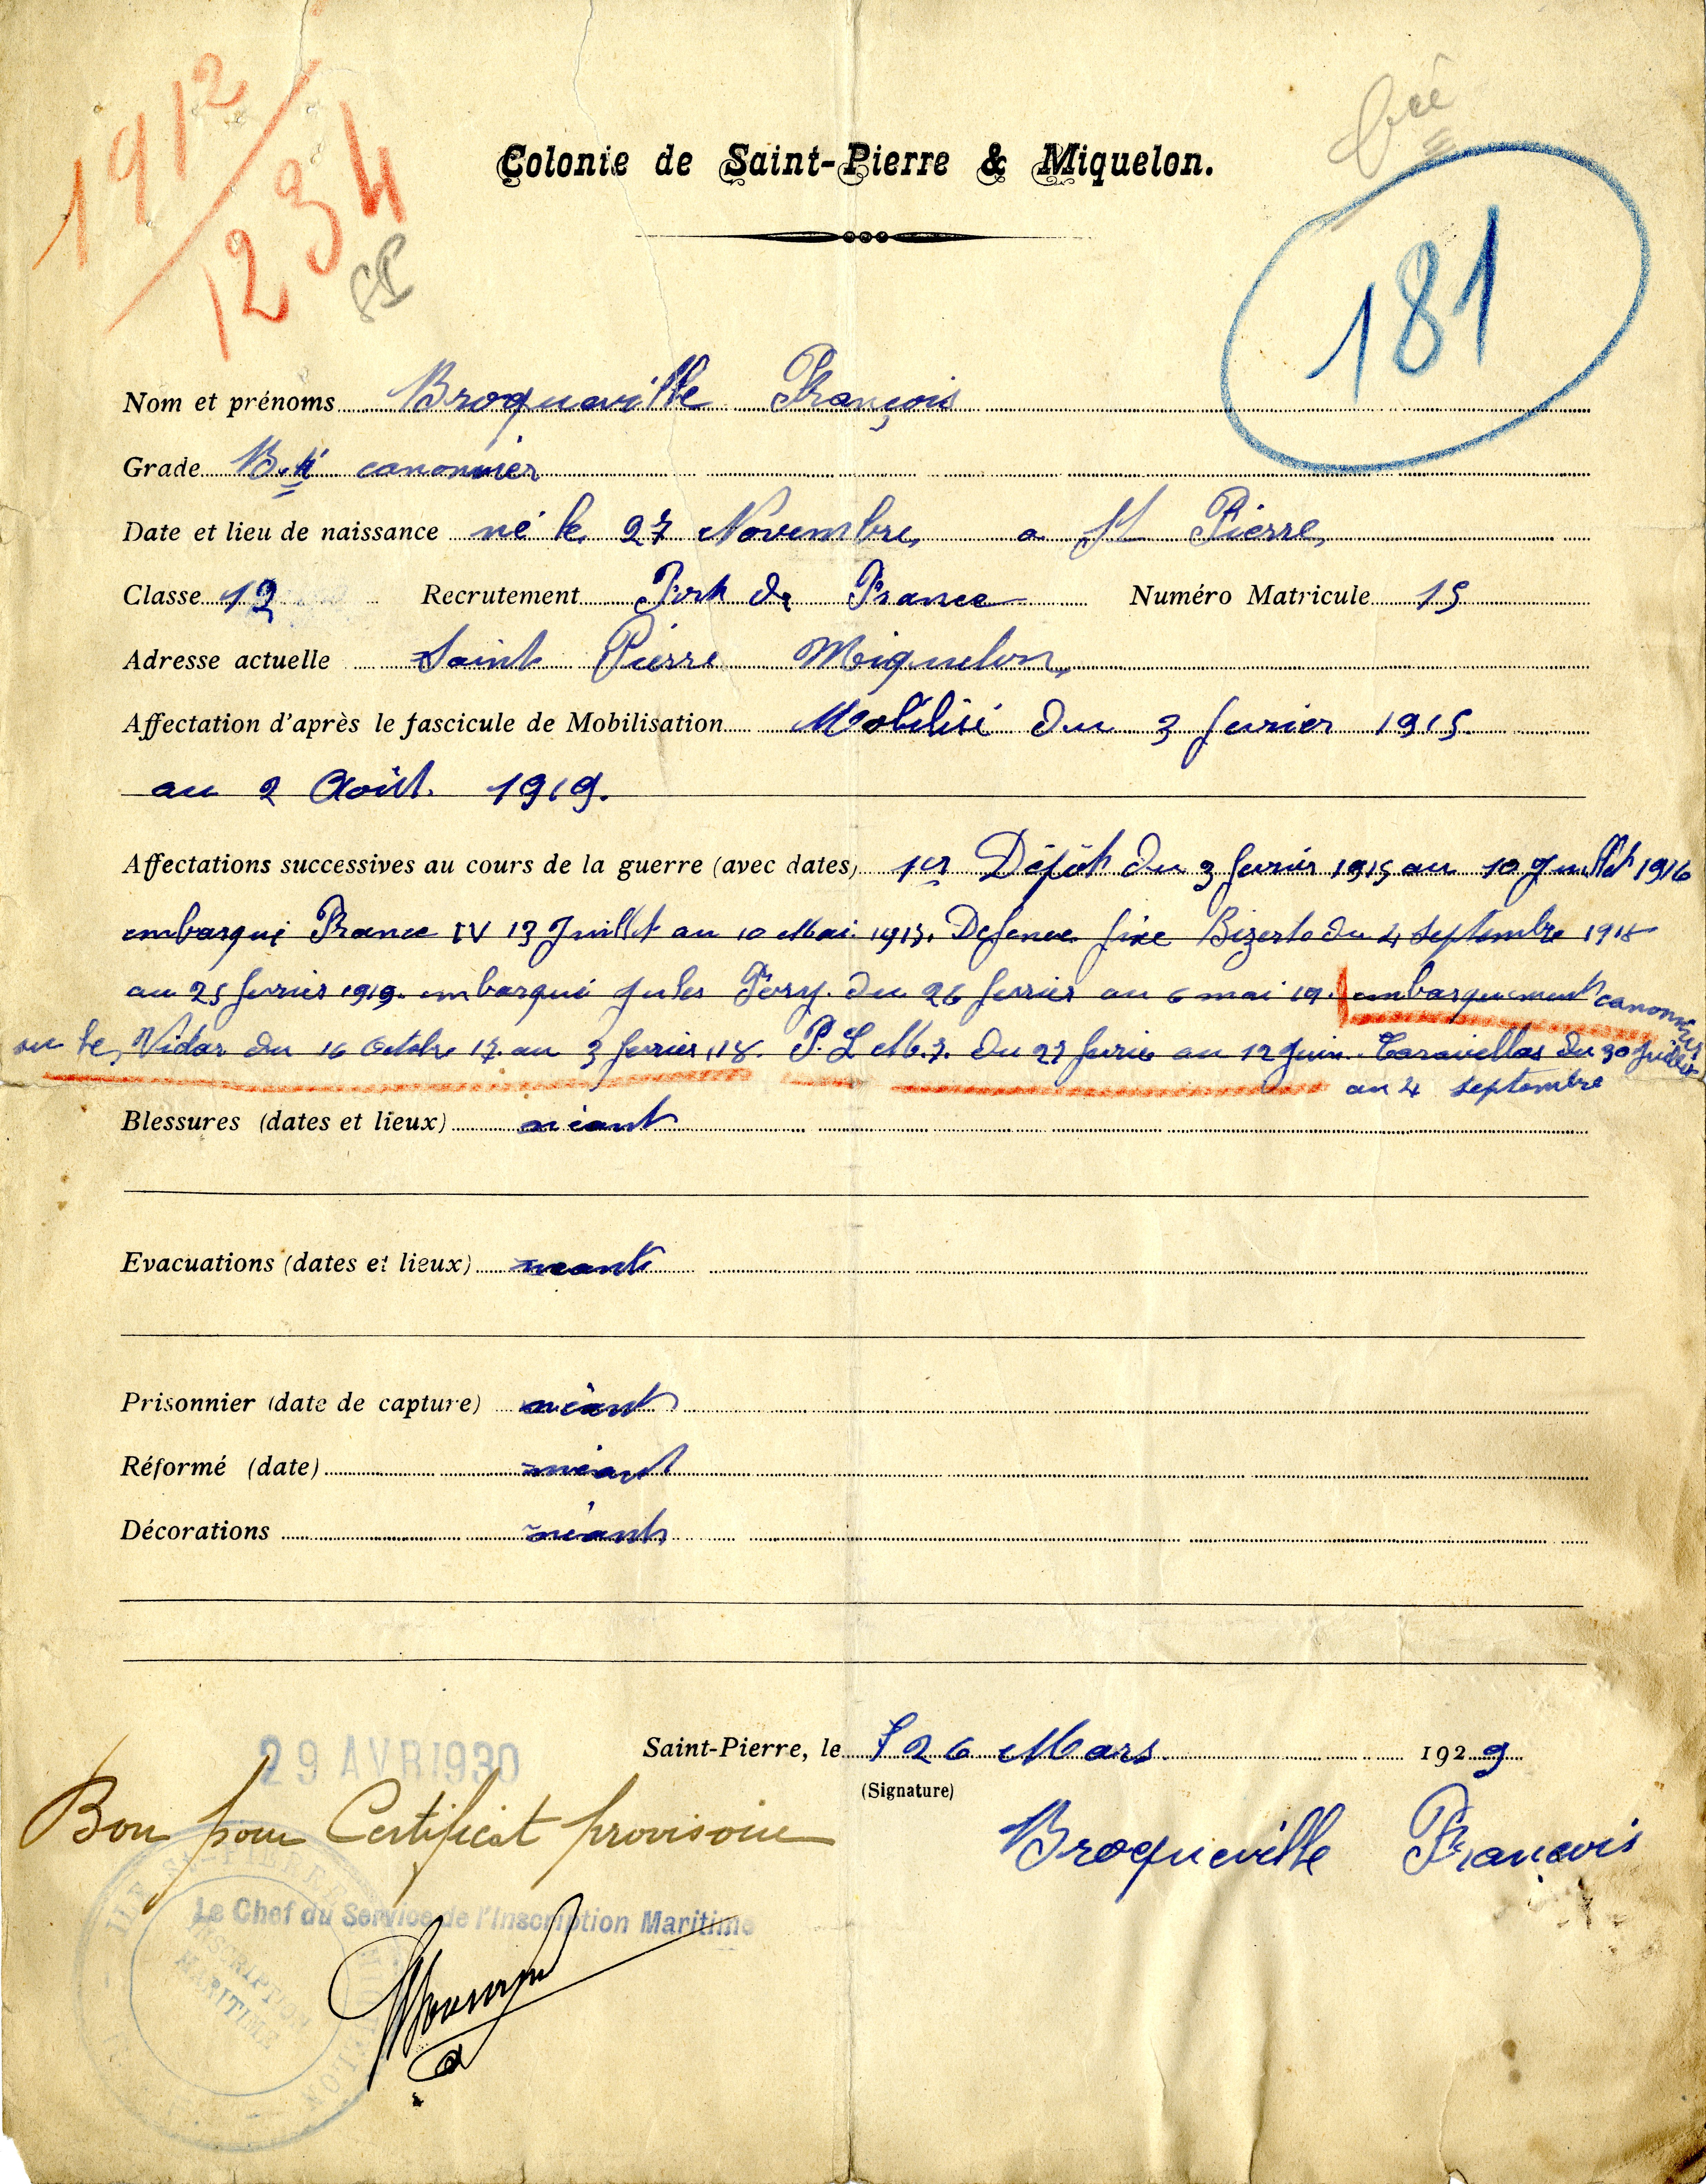 1912
1234
181
Colonie de Saint-Pierre & Miquelon.
Nom et prénoms Broqueville François
Grade Bté canonnier
Date et lieu de naissance né le 27 Novembre a St Pierre
Classe 12 Recrutement Fort de France Numéro Matricule 15
Adresse actuelle Saint Pierre Miquelon
Affectation d'après le fascicule de Mobilisation Mobilisé du 3 fevrier 1915
au 2 Août. 1919.
Affectations successives au cours de la guerre (avec dates) 1er Dépôt du 3 fevrier 1915 au 10 Juillet 1916
embarqué France IV 13 Juillet au 10 Mai 1917. Defence fixe Bizerte du 4 Septembre 1918
au 25 fevrier 1919. embarqué Jules Fery. du 26 fevrier au 6 mai 19. embarquement canonnier
sur le Vidar du 16 Octobre 17. au 3 fevrier 18. P.L.M.7. du 27 fevrie au 12 Juin. Caravellas du 30 Juillet
au 4 Septembre
Blessures (dates et lieux) néant
Evacuations (dates et lieux) neant
Prisonnier (date de capture) néant
Réformé (date) néant
Décorations néant
29 AVR 1930
Saint-Pierre, le 26 Mars 1929
(Signature)
Bon pour Certificat provisoire
Broqueville Francois
Le Chef du Service de l'Inscription Maritime
INSCRIPTION
MARITIME